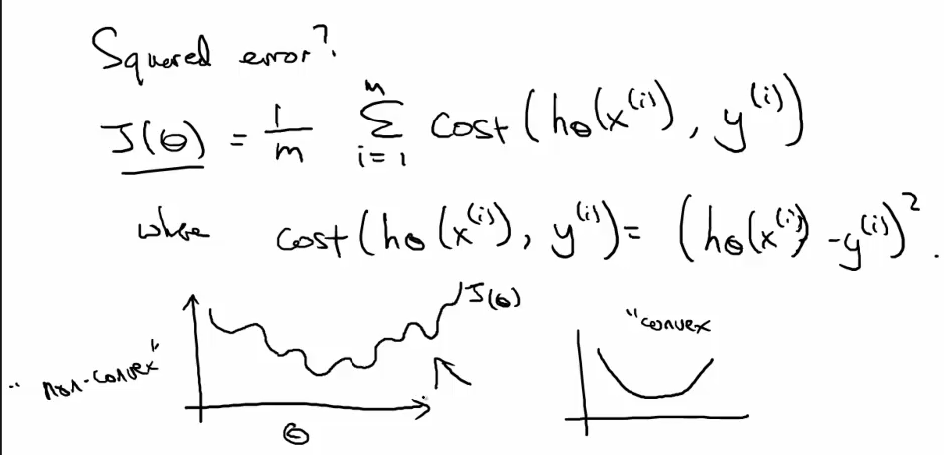 Squared error?
J(θ) = 1/m Σ_{i=1}^{m} cost(hθ(x^(i), y^(i))
where cost(hθ(x^(i)), y^(i)) = (hθ(x^(i)) - y^(i))^2.
J(θ)
"convex
"non-convex"
θ